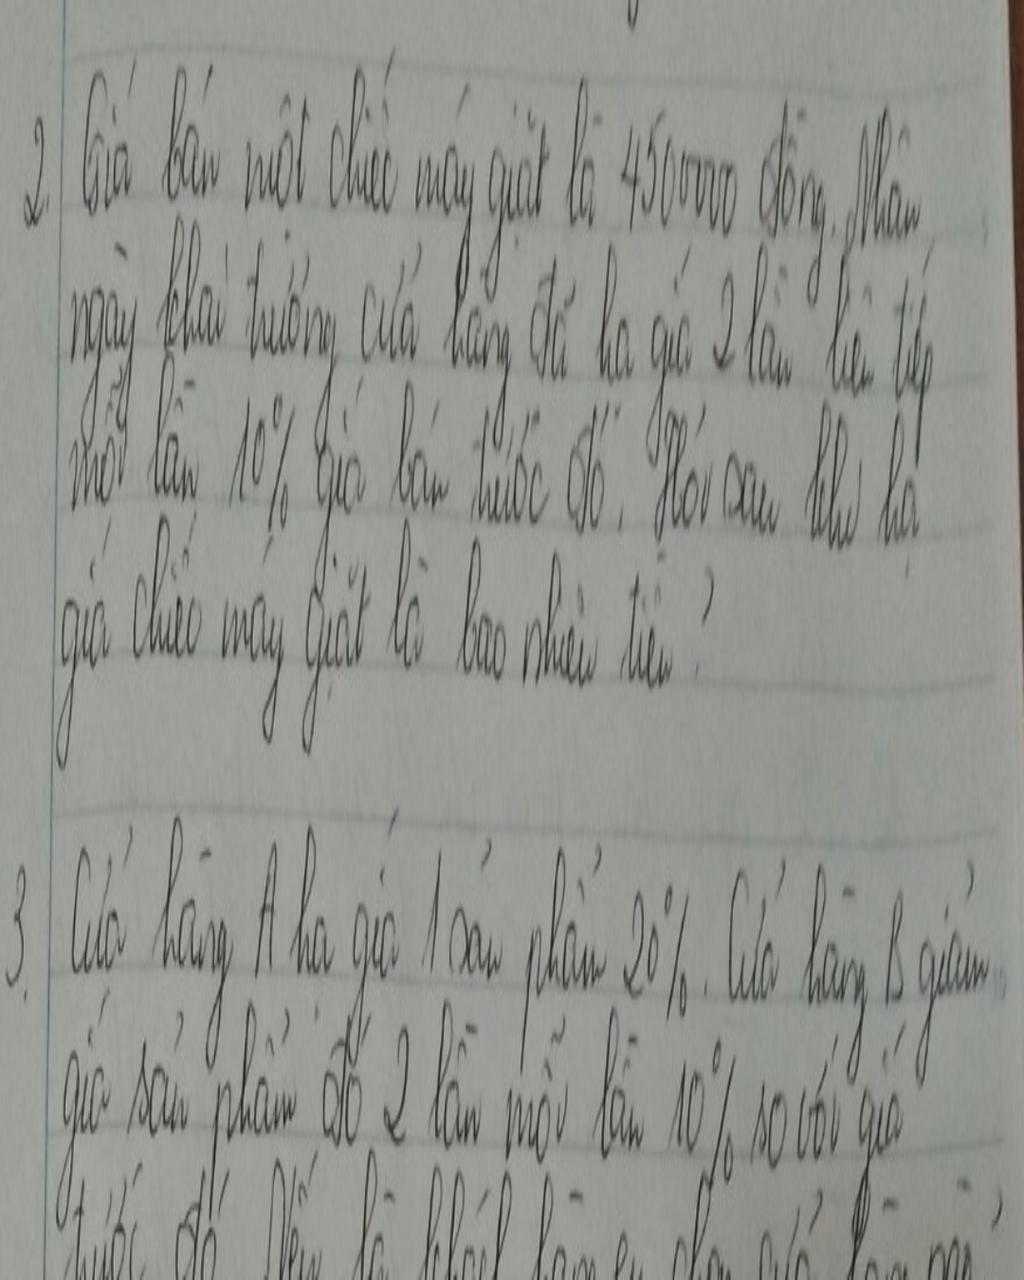 2. Giá bán một chiếc máy giặt là 4500000 đồng. Nhân
ngày khai trương cửa hàng đã hạ giá 2 lần liên tiếp
mỗi lần 10% giá bán trước đó. Hỏi sau khi hạ
giá chiếc máy giặt là bao nhiêu tiền?
3. Cửa hàng A hạ giá 1 sản phẩm 20%. Cửa hàng B giảm
giá sản phẩm đó 2 lần mỗi lần 10% so với giá
trước đó. Nếu là khách hàng em chọn cửa hàng nào